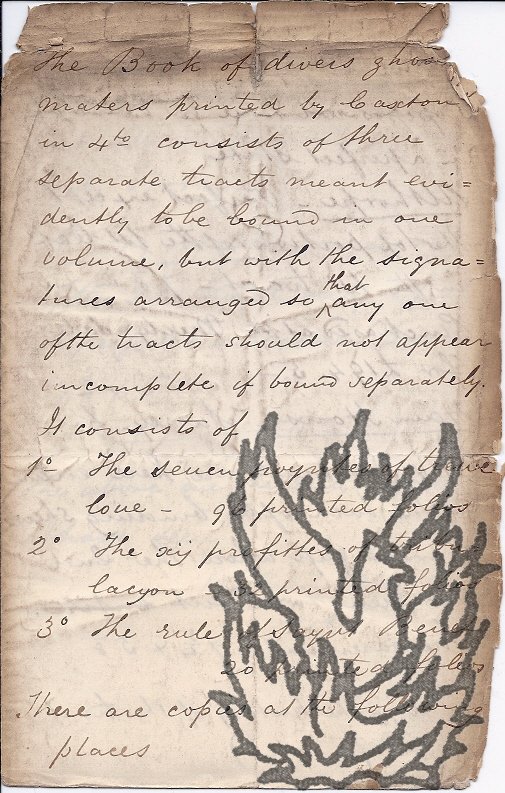 The Book of divers
maters printed by Caxton
in 4to consists of three
separate tracts meant evi=
dently to be bound in one
volume, but with the signa=
tures arranged so that any one
of the tracts should not appear
incomplete if bound separately.
It consists of
1o The seuen poyntes of trewe
loue - 96 printed folios
2o The xij profittes of tribu
lacyon - 32 printed folios
3o The rule of Saynt Benet
20 printed folios
There are copies at the following
places